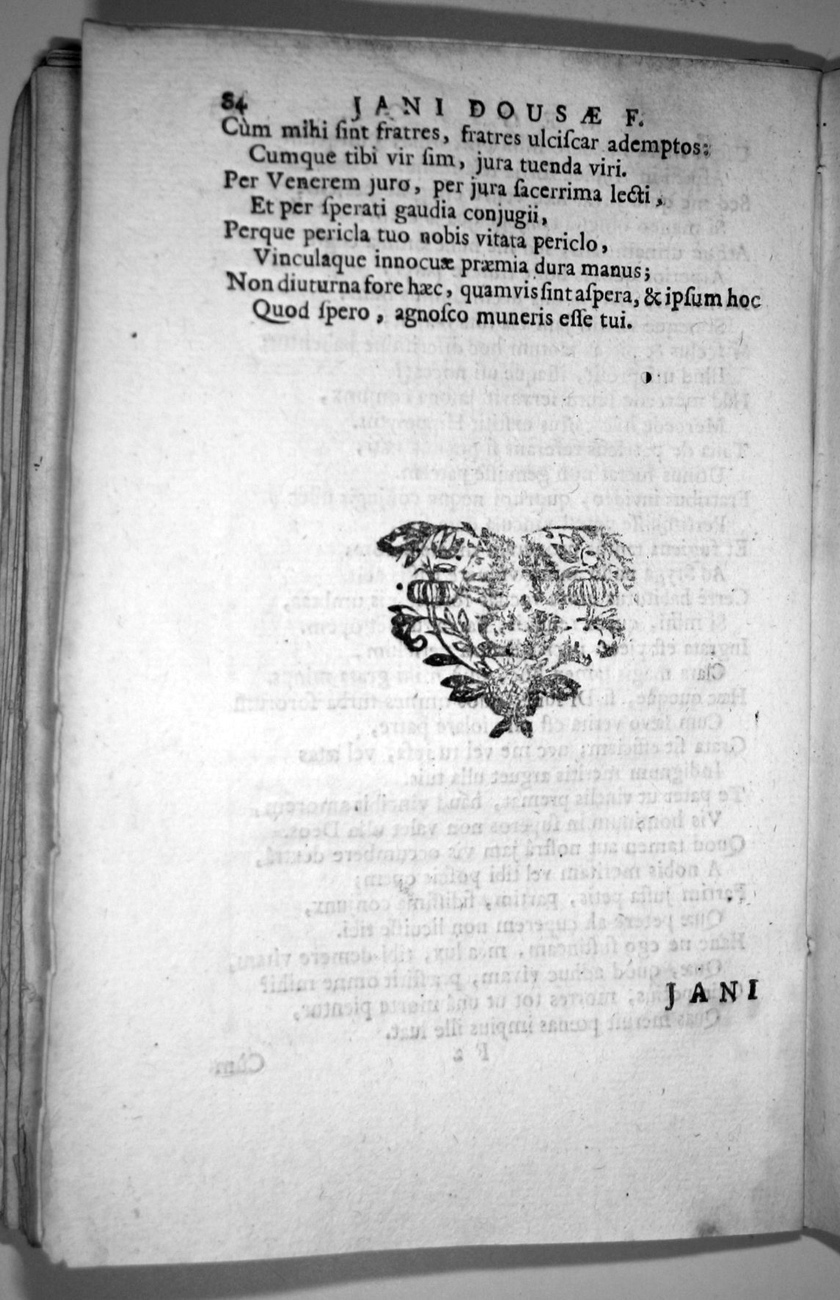 84 JANI DOUSÆ F.
Cùm mihi ſint fratres, fratres ulciſcar ademptos:
Cumque tibi vir ſim, jura tuenda viri.
Per Venerem juro, per jura ſacerrima lecti,
Et per ſperati gaudia conjugii,
Perque pericla tuo nobis vitata periclo,
Vinculaque innocuæ præmia dura manus;
Non diuturna fore hæc, quamvis ſint aſpera, & ipſum hoc
Quod ſpero, agnoſco muneris eſſe tui.
JANI